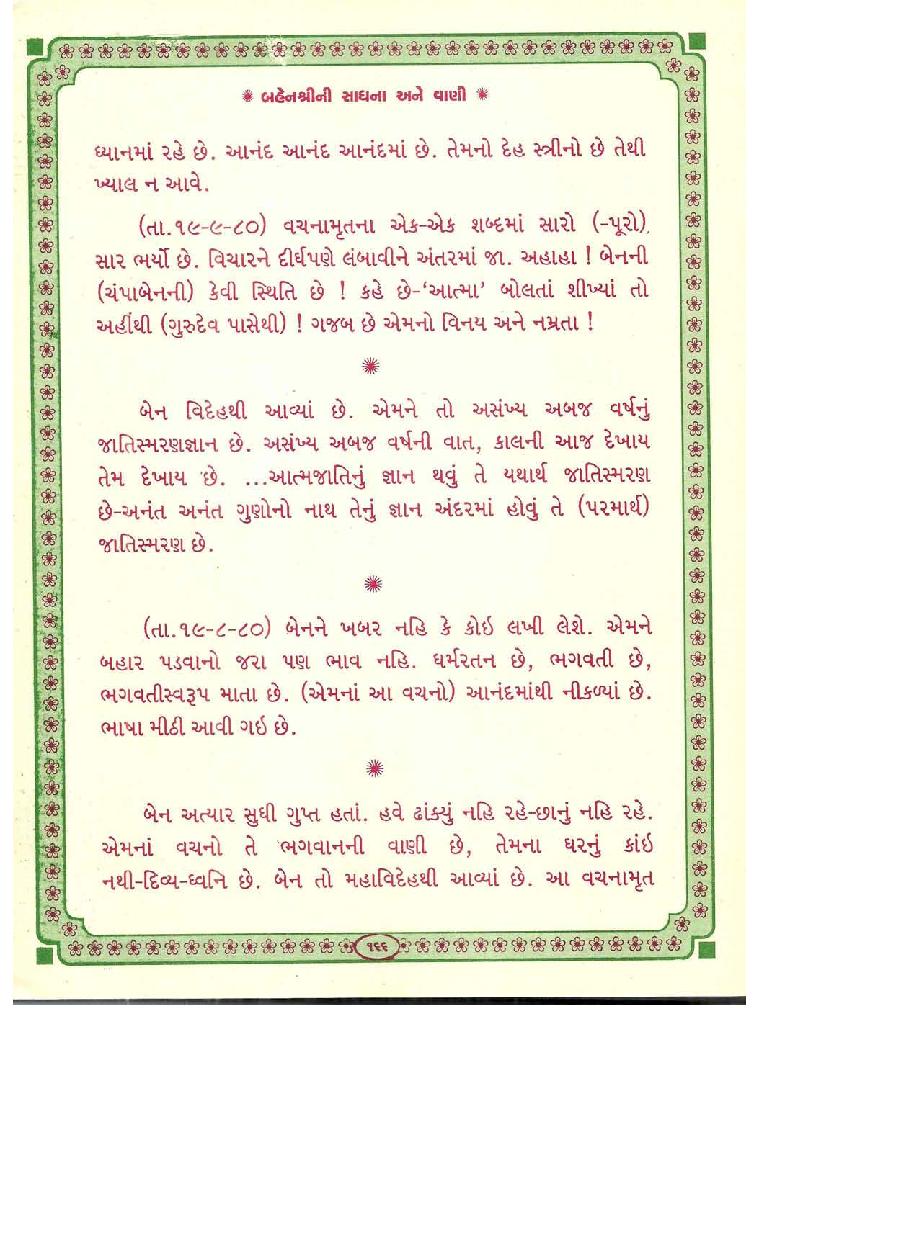 બહેનશ્રીની સાધના અને વાણી
ધ્યાનમાં રહે છે. આનંદ આનંદ આનંદમાં છે. તેમનો દેહ સ્ત્રીનો છે તેથી
ખ્યાલ ન આવે.
(તા.૧૯-૯-૮૦) વચનામૃતના એક-એક શબ્દમાં સારો (-પૂરો)
સાર ભર્યો છે. વિચારને દીર્ઘપણે લંબાવીને અંતરમાં જા. અહાહા ! બેનની
(ચંપાબેનની) કેવી સ્થિતિ છે ! કહે છે-‘આત્મા’ બોલતાં શીખ્યાં તો
અહીંથી (ગુરુદેવ પાસેથી) ! ગજબ છે એમનો વિનય અને નમ્રતા !
બેન વિદેહથી આવ્યાં છે. એમને તો અસંખ્ય અબજ વર્ષનું
જાતિસ્મરણજ્ઞાન છે. અસંખ્ય અબજ વર્ષની વાત, કાલની આજ દેખાય
તેમ દેખાય છે. ...આત્મજાતિનું જ્ઞાન થવું તે યથાર્થ જાતિસ્મરણ
છે-અનંત અનંત ગુણોનો નાથ તેનું જ્ઞાન અંદરમાં હોવું તે (પરમાર્થ)
જાતિસ્મરણ છે.
(તા.૧૯-૮-૮૦) બેનને ખબર નહિ કે કોઇ લખી લેશે. એમને
બહાર પડવાનો જરા પણ ભાવ નહિ. ધર્મરતન છે, ભગવતી છે,
ભગવતીસ્વરૂપ માતા છે. (એમનાં આ વચનો) આનંદમાંથી નીકળ્યાં છે.
ભાષા મીઠી આવી ગઇ છે.
બેન અત્યાર સુધી ગુપ્ત હતાં. હવે ઢાંક્યું નહિ રહે-છાનું નહિ રહે.
એમનાં વચનો તે ભગવાનની વાણી છે, તેમના ઘરનું કાંઇ
નથી-દિવ્ય-ધ્વનિ છે. બેન તો મહાવિદેહથી આવ્યાં છે. આ વચનામૃત
૧૬૬